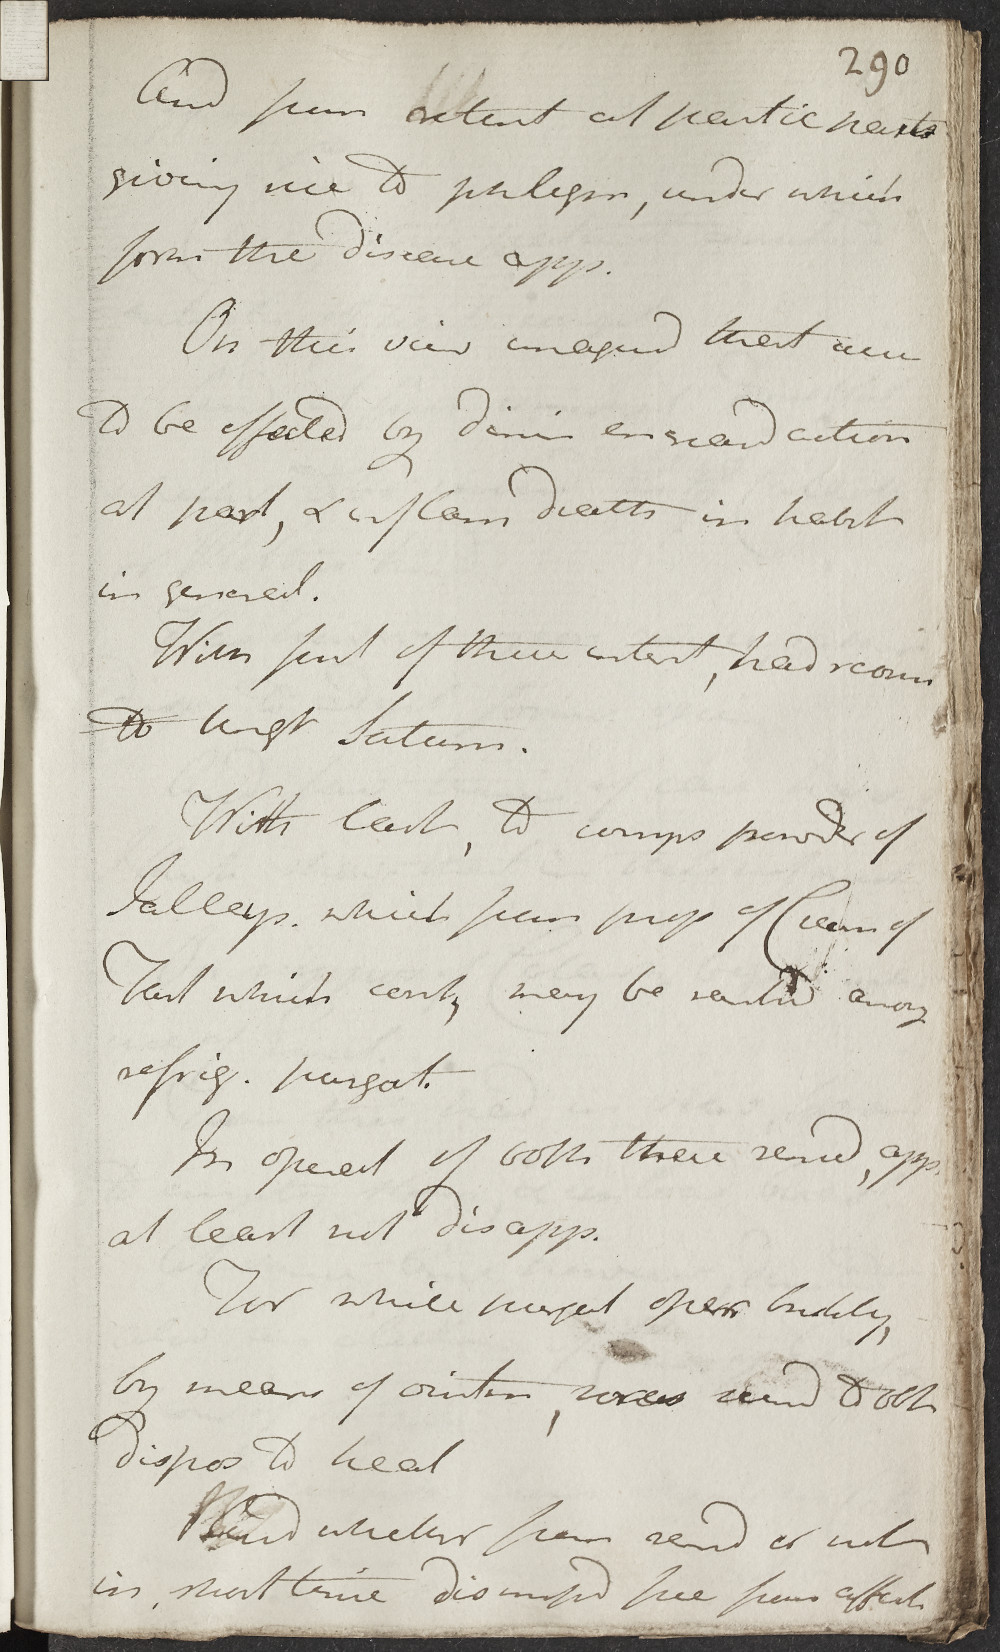 290
And from extent at partic parts
giving rise to phlegm, under which
form the disease app.
On this view imagind that cure
to be effected by dimin encreasd action
at part, & inflam diath in habit
in general.
With first of these intent, had recour
to Ungt Saturn.
With last, to comp powder of
Jallap. which from prop of Cream of
Tart which cert may be rankd among
refrig. purgat.
In operat of both these remd, app
at least not disapp.
For while purgat oper briskly,
by means of ointm, sores seemd to obt
dispos to heal
And whether from remd or not
in short time dismissd free from affect